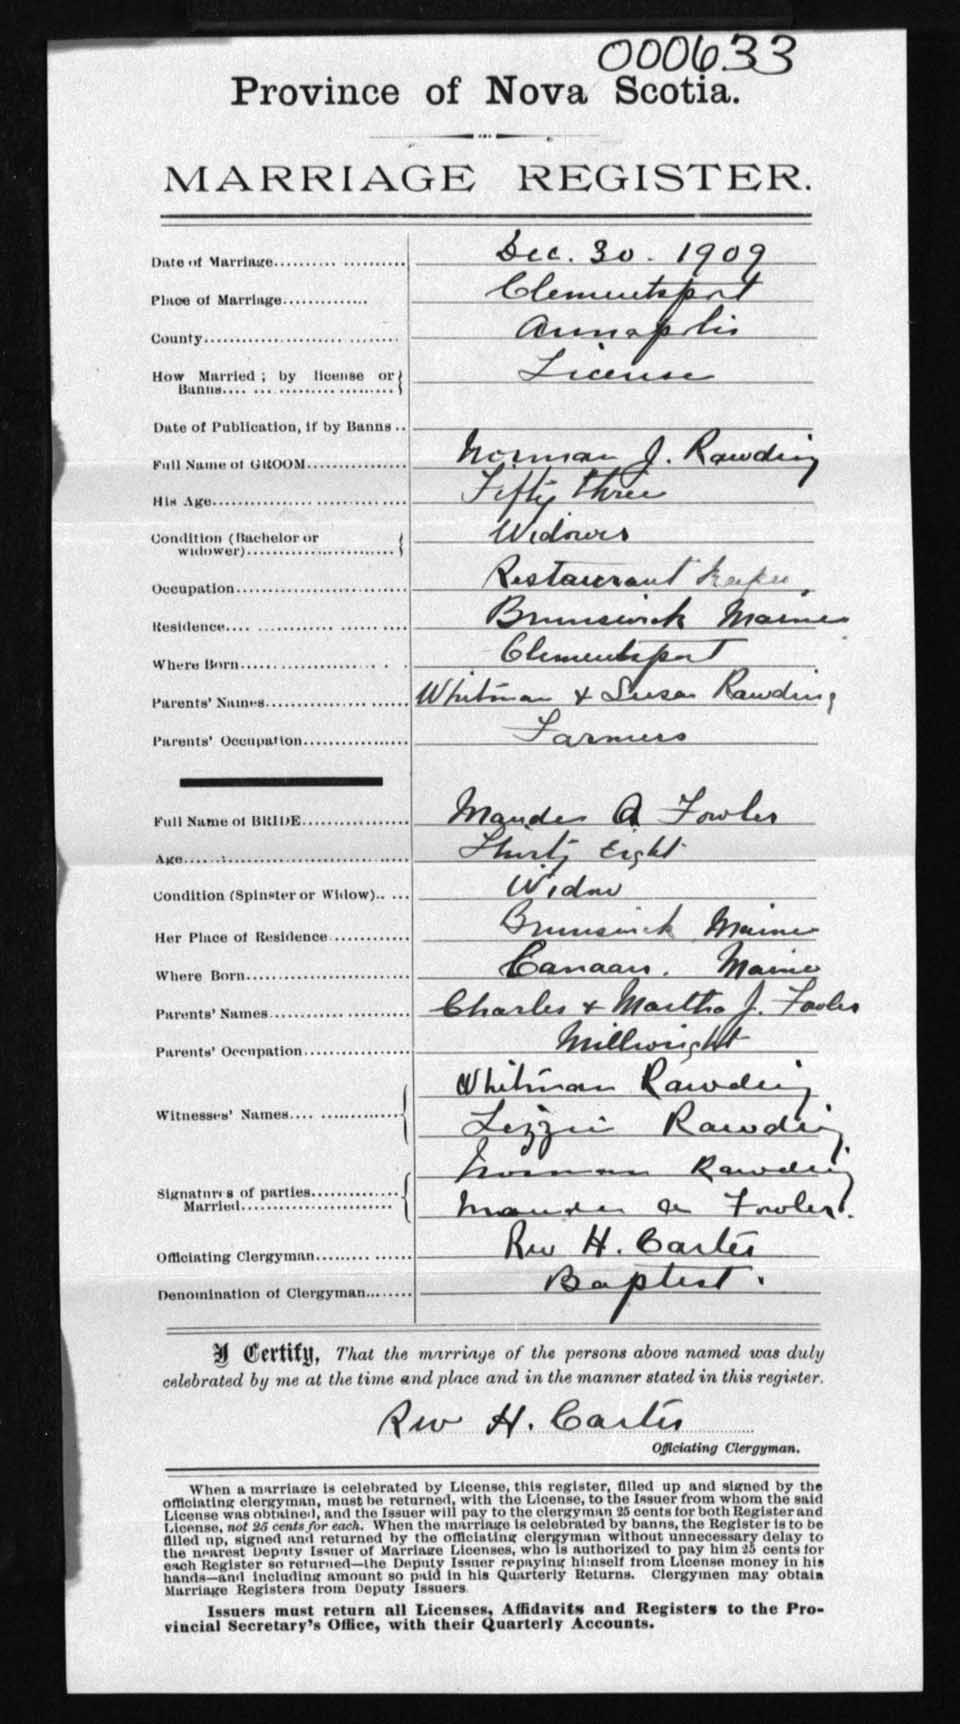 000633
Province of Nova Scotia.
MARRIAGE REGISTER.
Date of Marriage.................. Dec. 30. 1909
Place of Marriage............. Clementsport
County.............................. Annapolis
How Married ; by license or License
Banns..........................
Date of Publication, if by Banns ..
Full Name of GROOM............... Norman J. Rawding
His Age.............................. Fifty three
Condition (Bachelor or Widower
widower).......................
Occupation......................... Restaurant Keeper
Residence.......................... Brunswick Maine
Where Born...................... Clementsport
Parents' Names..................... Whitman & Susan Rawding
Parents' Occupation................ Farmers
Full Name of BRIDE................. Maude A Fowler
Age.................................. Thirty Eight
Condition (Spinster or Widow)..... Widow
Her Place of Residence............ Brunswick Maine
Where Born........................ Canaan. Maine
Parents' Names..................... Charles & Martha J. Fowler
Parents' Occupation................ Millwright
Whitman Rawding
Witnesses' Names................
Lizzie Rawding
Norman Rawding
Signatures of parties..............
Married....................... Maude A Fowler.
Officiating Clergyman.............. Rev H. Carter
Denomination of Clergyman........ Baptist.
I Certify, That the marriage of the persons above named was duly
celebrated by me at the time and place and in the manner stated in this register.
Rev H. Carter
Officiating Clergyman.
When a marriage is celebrated by License, this register, filled up and signed by the
officiating clergyman, must be returned, with the License, to the Issuer from whom the said
License was obtained, and the Issuer will pay to the clergyman 25 cents for both Register and
License, not 25 cents for each. When the marriage is celebrated by banns, the Register is to be
filled up, signed and returned by the officiating clergyman without unnecessary delay to
the nearest Deputy Issuer of Marriage Licenses, who is authorized to pay him 25 cents for
each Register so returned—the Deputy Issuer repaying himself from License money in his
hands—and including amount so paid in his Quarterly Returns. Clergymen may obtain
Marriage Registers from Deputy Issuers.
Issuers must return all Licenses, Affidavits and Registers to the Pro-
vincial Secretary's Office, with their Quarterly Accounts.